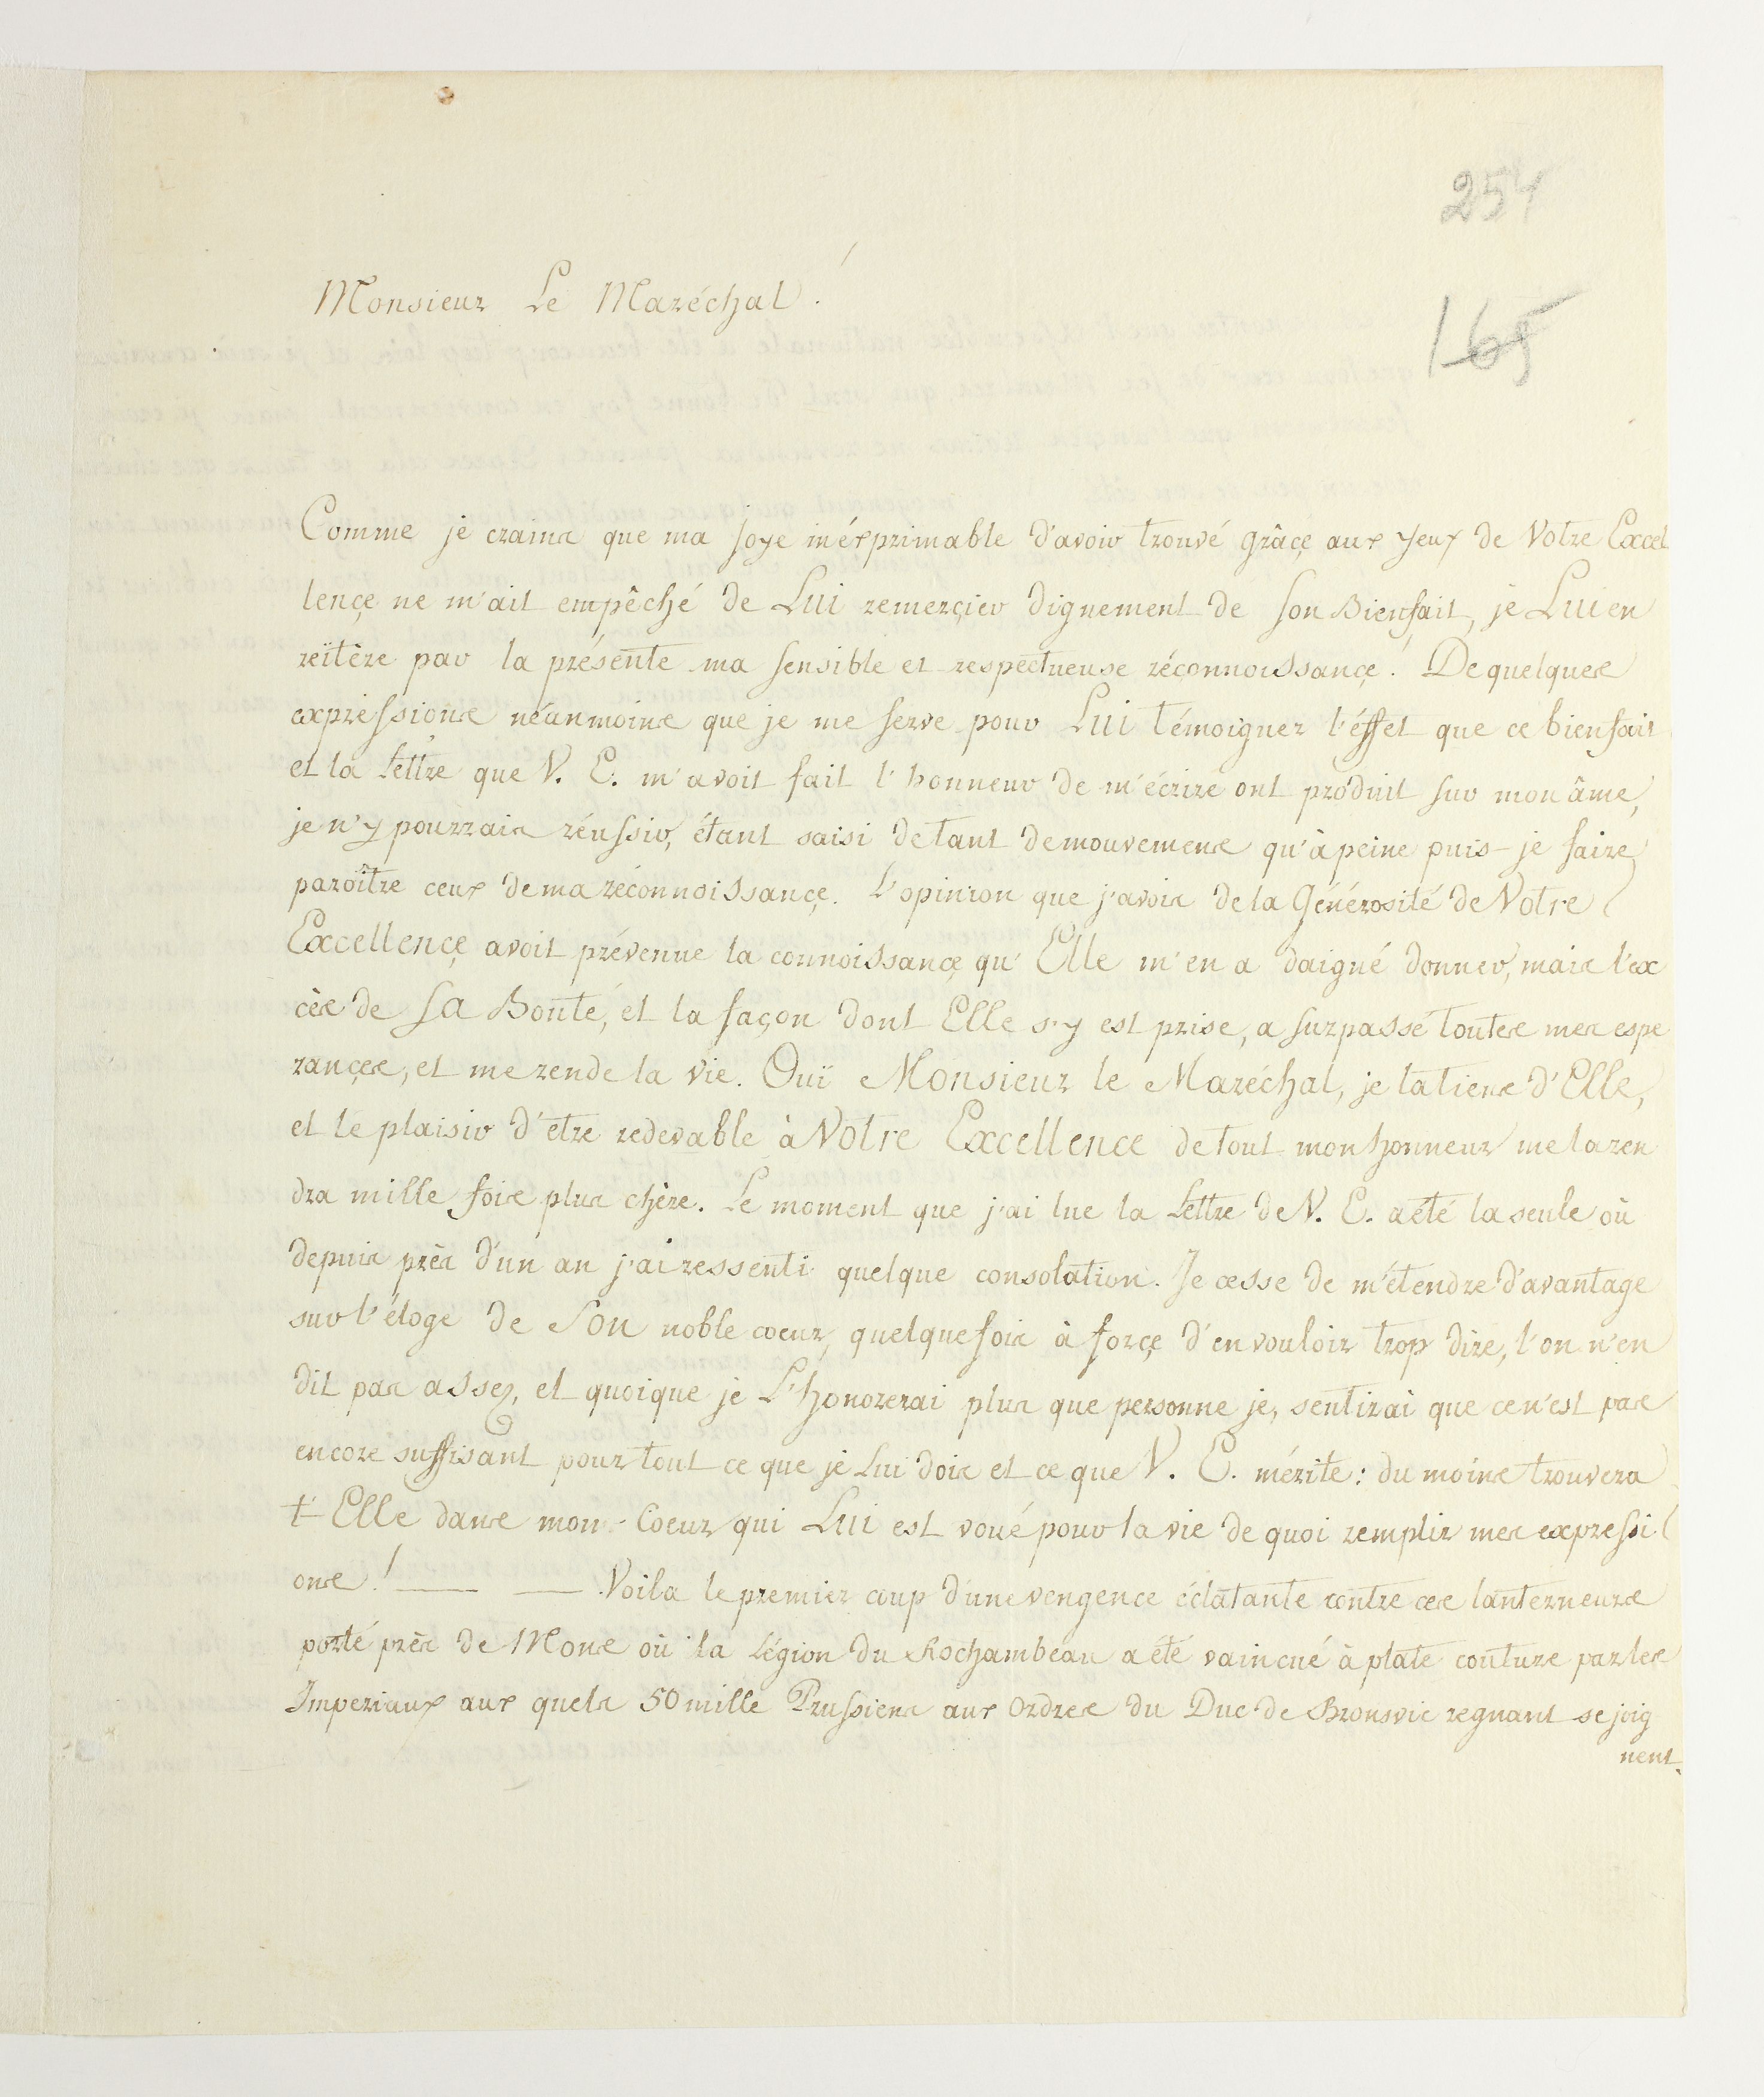 254
Monsieur Le Maréchal !
165
Comme je crains que ma Joye inéxprimable d'avoir trouvé grâçe aux yeux de Votre Excel
lençe ne m'ait empêché de Lui remerçier dignement de son Bienfait, je Lui en
reïtère par la présente ma sensible et respectueuse réçonnoissançe ! De quelques
expressions néanmoins que je me serve pour Lui témoigner l'éffet que ce bienfait
et la Lettre que V. E. m'avoit fait l'honneur de m'écrire ont produit sur mon âme,
je n'y pourrais réussir, étant saisi de tant de mouvemens qu'à peine puis-je faire
paroître ceux de ma réconnoissançe. L'opinion que j'avois de la Générosité de Votre
Excellençe avoit prévenue la connoissançe qu'Elle m'en a daigné donner, mais l'ex
cès de Sa Bonté, et la façon dont Elle s'y est prise, a surpassé toutes mes espe
rançes, et me rende la vie. Ouï Monsieur le Maréchal, je la tiens d'Elle,
et le plaisir d'etre redevable à Votre Excellence de tout mon honneur me la ren
dra mille fois plus chère. Le moment que j'ai lue la Lettre de V. E. a été la seule où
depuis près d'un an j'ai ressenti quelque consolation. Je cesse de m'étendre d'avantage
sur l'éloge de Son noble coeur, quelquefois à forçe d'en vouloir trop dire, l'on n'en
dit pas assez, et quoique je L'honorerai plus que personne je, sentirai que ce n'est pas
encore suffisant pour tout ce que je Lui dois et ce que V. E. mérite : du moins trouvera
t'-Elle dans mon Coeur qui Lui est voué pour la vie de quoi remplir mes expressi
ons ! — — Voila le premier coup d'une vengence éclatante contre ces lanterneurs
porté près de Mons où la Légion du Rochambeau a été vaincué à plate couture par les
Imperiaux aux quels 50 mille Prussiens aux Ordres du Duc de Bronsvic regnant se joig
nent.